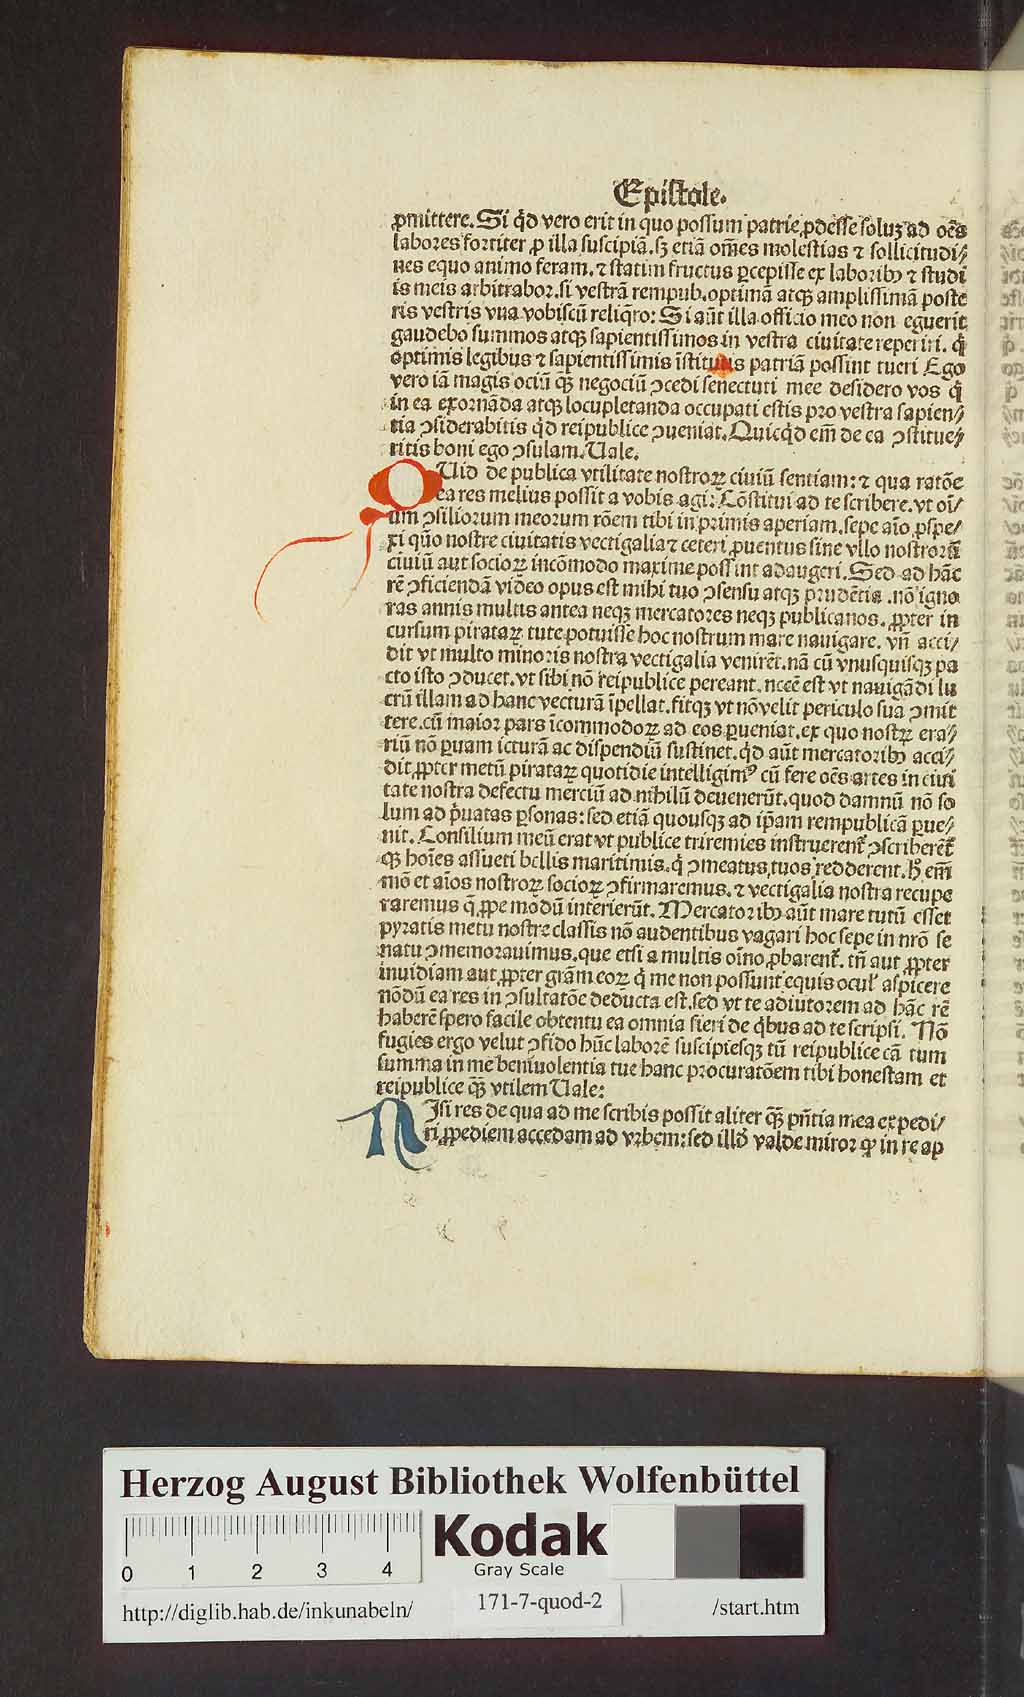 Epistole.
ꝓmittere. Si qd̉ vero erit in quo possum patrie ꝓdesse soluꝫ ad oēs
labores fortiter ꝓ illa suscipiā. sꝫ etiā om̄es molestias ⁊ sollicitudi⸗
nes equo animo feram. ⁊ statim fructus ꝑcepisse ex laboribꝰ ⁊ studi
is meis arbitrabor. si vestrā rempub. optimā atqꝫ amplissimā poste
ris vestris vna vobiscū reliq̄ro: Si aūt illa officio meo non eguerit
gaudebo summos atqꝫ sapientissimos in vestra ciuitate reperiri. q̉
optimis legibus ⁊ sapientissimis īstitutis patriā possint tueri Ego
vero iā magis ociū qꝫ̄ negociū ꝯcedi senectuti mee desidero vos q̉
in ea exornāda atqꝫ locupletanda occupati estis pro vestra sapien⸗
tia ꝯsiderabitis qd̉ reipublice ꝯueniat. Quicqd̉ em̄ de ea ꝯstitue⸗
ritis boni ego ꝯsulam. Uale.
QUid de publica vtilitate nostroꝝ ciuiū sentiam: ⁊ qua ratōe
ea res melius possit a vobis agi: Cōstitui ad te scribere. vt oī⸗
um ꝯsiliorum meorum rōem tibi in primis aperiam. sepe aīo ꝓspe⸗
xi quō nostre ciuitatis vectigalia ⁊ ceteri ꝓuentus sine vllo nostrorū
ciuiū aut socioꝝ incōmodo maxime possint adaugeri. Sed ad hāc
rē ꝯficiendā video opus est mihi tuo ꝯsensu atqꝫ prudētia. nō igno
ras annis multis antea neqꝫ mercatores neqꝫ publicanos. ꝓpter in
cursum pirataꝝ tute potuisse hoc nostrum mare nauigare. vn̄ acci⸗
dit vt multo minoris nostra vectigalia venirēt. nā cū vnusquisqꝫ pa
cto isto ꝯducet. vt sibi nō reipublice pereant. nccē est vt nauigādi lu
crū illam ad hanc vecturā īpellat. fitqꝫ vt nō velit periculo sua ꝯmit
tere. cū maior pars īcommodoꝝ ad eos ꝑueniat. ex quo nostꝝ era⸗
riū nō ꝑuam icturā ac dispendiū sustinet. qd̉ aūt mercatoribꝰ acci⸗
dit ꝓpter metū pirataꝝ quotidie intelligimꝰ cū fere oēs artes in ciui
tate nostra defectu merciū ad nihilū deuenerūt. quod damnū nō so
lum ad p̉uatas ꝑsonas: sed etiā quousqꝫ ad ip̄am rempublicā ꝑue⸗
nit. Consilium meū erat vt publice triremies instruerent᷑ ꝯscriberēt᷑
qꝫ hoīes assueti bellis maritimis. q̉ ꝯmeatus tuos redderent. H̄ em̄
mō et aīos nostroꝝ socioꝝ ꝯfirmaremus. ⁊ vectigalia nostra recupe
raremus q̄ ꝓpe modū interierūt. Mercatoribꝰ aūt mare tutū esset
pyratis metu nostre classis nō audentibus vagari hoc sepe in nrō se
natu ꝯmemorauimus. que etsi a multis oīno ꝓbarent᷑. tn̄ aut ꝓpter
inuidiam aut ꝓpter grām eoꝝ q̉ me non possunt equis ocul̉ aspicere
nōdū ea res in ꝯsultatōe deducta est. sed vt te adiutorem ad hāc rē
haberē spero facile obtentu ea omnia fieri de qb̉us ad te scripsi. Nō
fugies ergo velut ꝯfido hūc laborē suscipiesqꝫ tū reipublice cā tum
summa in me beniuolentia tue hanc procuratōem tibi honestam et
reipublice qꝫ̄ vtilem Uale:
NIsi res de qua ad me scribis possit aliter qꝫ̄ pn̄tia mea expedi⸗
ri ꝓpediem accedam ad vrbem: sed illd̉ valde miror ꝙ in re ap
Herzog August Bibliothek Wolfenbüttel
0 1 2 3 4
Kodak
Gray Scale
http://diglib.hab.de/inkunabeln/ 171-7-quod-2 /start.htm